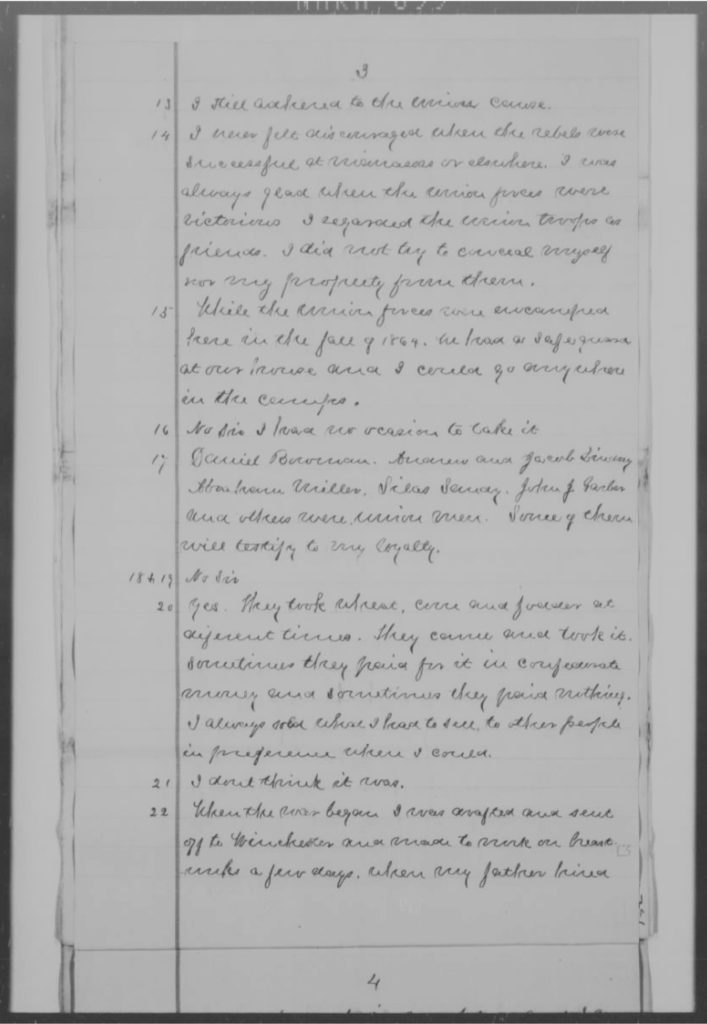 3
13 I still adhered to the Union cause.
14 I never felt discouraged when the rebels were
successful at Manassas or elsewhere. I was
always glad when the Union forces were
victorious I regarded the Union troops as
friends. I did not try to conceal myself
nor my property from them.
15 While the Union forces were encamped
here in the fall of 1864. We had a safeguard
at our house and I could go anywhere
in the camps.
16 No Sir I had no ocasion to take it
17 Daniel Bowman. Andrew and Jacob
Abraham Miller, Silas John J
and others were Union men. Some of them
will testify to my loyalty.
18 & 19 No Sir
20 Yes. They took wheat, corn and fodder at
diferent times. They came and took it.
Sometimes they paid for it in confederate
money and sometimes they paid nothing.
I always sold what I had to sell, to other people
in preference when I could.
21 I dont think it was.
22 When the war began I was drafted and sent
off to Winchester and made to work on breast
works a few days. when my father hired
4